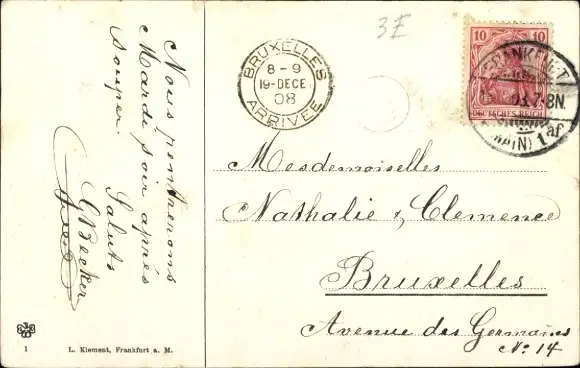 Nous rentrerons
Mardi soir après
souper.
Saluts
G Becker
3 E
BRUXELLES
8 - 9
19-DECE
08
ARRIVÉE
10 10
DEUTSCHES REICH
FRANKFURT
7-8N.
(MAIN) 1 af
Mesdemoiselles
Nathalie & Clemence
Bruxelles
Avenue des Germains
No. 14
1 L. Klement, Frankfurt a. M.